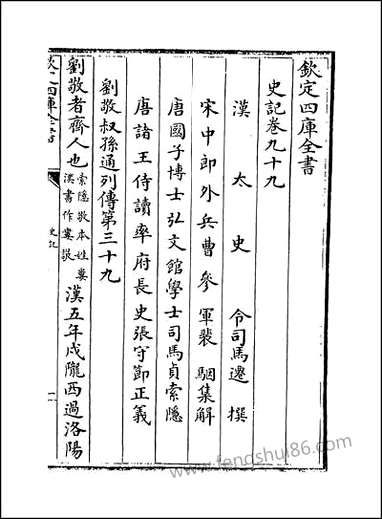 欽定四庫全書
史記卷九十九
漢太史令司馬遷撰
宋中郎外兵曹參軍裴駰集解
唐國子博士弘文館學士司馬貞索隱
唐諸王侍讀率府長史張守節正義
劉敬叔孫通列傳第三十九
劉敬者齊人也索隱敬本姓婁漢書作婁敬漢五年戍隴西過洛陽
欽定四庫全書
史記
一
www.fengshui86.com